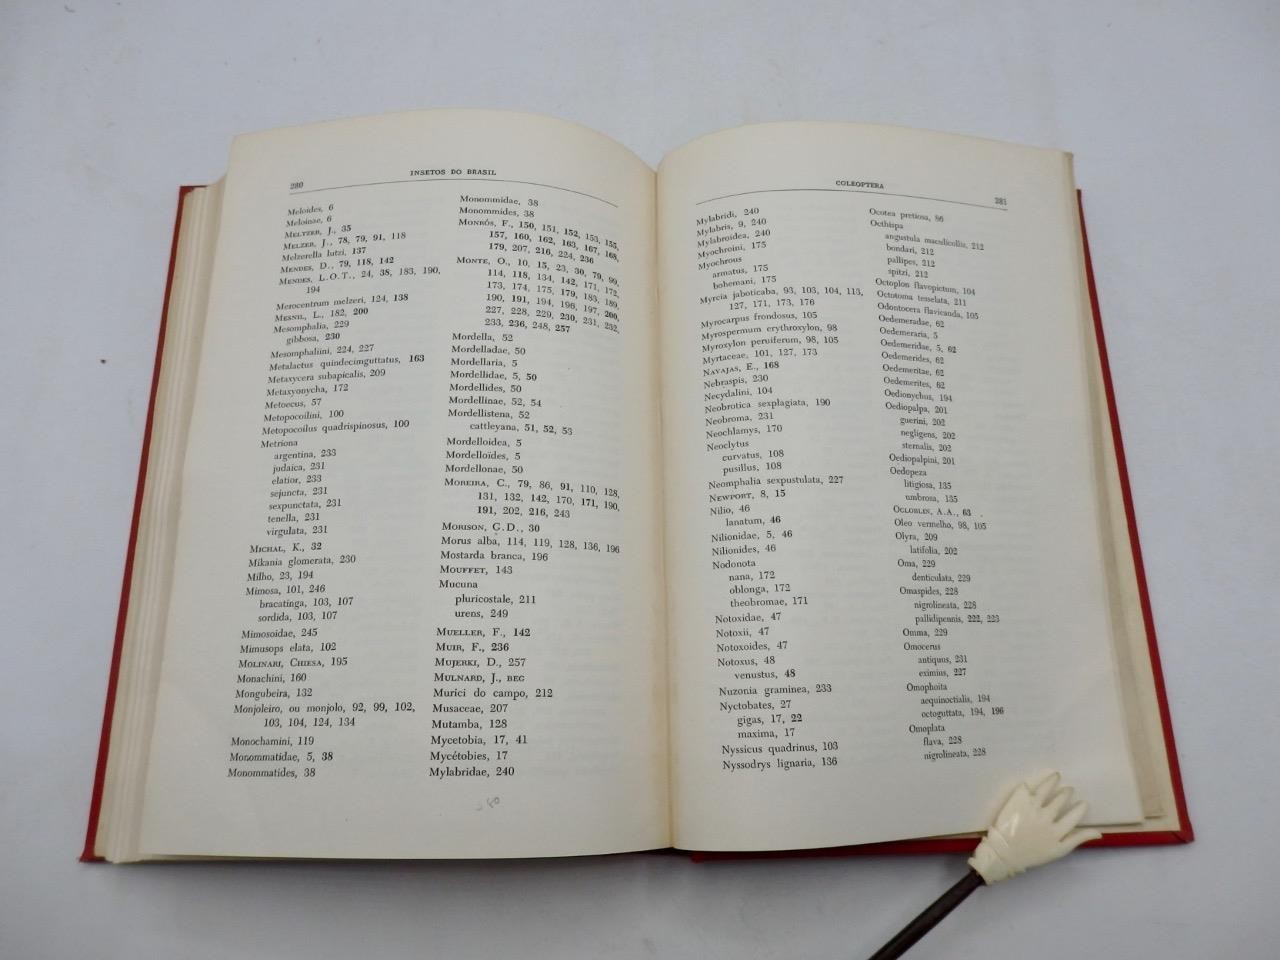 280
INSETOS DO BRASIL
Meloides, 6
Meloinae, 6
MELTZER, J., 35
MELZER, J., 78, 79, 91, 118
Melzerella lutzi, 137
MENDES, D., 79, 118, 142
MENDES, L.O.T., 24, 38, 183, 190,
194
Merocentrum melzeri, 124, 138
MESNIL, L., 182, 200
Mesomphalia, 229
gibbosa, 230
Mesomphaliini, 224, 227
Metalactus quindecimguttatus, 163
Metaxycera subapicalis, 209
Metaxyonycha, 172
Metoecus, 57
Metopocoilini, 100
Metopocoilus quadrispinosus, 100
Metriona
argentina, 233
judaica, 231
elatior, 233
sejuncta, 231
sexpunctata, 231
tenella, 231
virgulata, 231
MICHAL, K., 32
Mikania glomerata, 230
Milho, 23, 194
Mimosa, 101, 246
bracatinga, 103, 107
sordida, 103, 107
Mimosoidae, 245
Mimusops elata, 102
MOLINARI, CHIESA, 195
Monachini, 160
Mongubeira, 132
Monjoleiro, ou monjolo, 92, 99, 102,
103, 104, 124, 134
Monochamini, 119
Monommatidae, 5, 38
Monommatides, 38
Monommidae, 38
Monommides, 38
MONNÓS, F., 150, 151, 152, 153, 155,
157, 160, 162, 163, 167, 168,
179, 207, 216, 224, 236
MONTE, O., 10, 15, 23, 30, 79, 99,
114, 118, 134, 142, 171, 172,
173, 174, 175, 179, 183, 189,
190, 191, 194, 196, 197, 200,
227, 228, 229, 230, 231, 232,
233, 236, 248, 257
Mordella, 52
Mordelladae, 50
Mordellaria, 5
Mordellidae, 5, 50
Mordellides, 50
Mordellinae, 52, 54
Mordellistena, 52
cattleyana, 51, 52, 53
Mordelloidea, 5
Mordelloïdes, 5
Mordellonae, 50
MOREIRA, C., 79, 86, 91, 110, 128,
131, 132, 142, 170, 171, 190,
191, 202, 216, 243
MORISON, G.D., 30
Morus alba, 114, 119, 128, 136, 196
Mostarda branca, 196
MOUFFET, 143
Mucuna
pluricostale, 211
urens, 249
MUELLER, F., 142
MUIR, F., 236
MUJERKI, D., 257
MULNARD, J., BEG
Murici do campo, 212
Musaceae, 207
Mutamba, 128
Mycetobia, 17, 41
Mycétobies, 17
Mylabridae, 240
COLEOPTERA
281
Mylabridi, 240
Mylabris, 9, 240
Mylabroidea, 240
Myochroini, 175
Myochrous
armatus, 175
bohemani, 175
Myrcia jaboticaba, 93, 103, 104, 113,
127, 171, 173, 176
Myrocarpus frondosus, 105
Myrospermum erythroxylon, 98
Myroxylon peruiferum, 98, 105
Myrtaceae, 101, 127, 173
NAVAJAS, E., 168
Nebraspis, 230
Necydalini, 104
Neobrotica sexplagiata, 190
Neobroma, 231
Neochlamys, 170
Neoclytus
curvatus, 108
pusillus, 108
Neomphalia sexpustulata, 227
NEWPORT, 8, 15
Nilio, 46
lanatum, 46
Nilionidae, 5, 46
Nilionides, 46
Nodonota
nana, 172
oblonga, 172
theobromae, 171
Notoxidae, 47
Notoxii, 47
Notoxoides, 47
Notoxus, 48
venustus, 48
Nuzonia graminea, 233
Nyctobates, 27
gigas, 17, 22
maxima, 17
Nyssicus quadrinus, 103
Nyssodrys lignaria, 136
Ocotea pretiosa, 86
Octhispa
angustula maculicollis, 212
bondari, 212
pallipes, 212
spitzi, 212
Octoplon flavopictum, 104
Octotoma tesselata, 211
Odontocera flavicauda, 105
Oedemeradae, 62
Oedemeraria, 5
Oedemeridae, 5, 62
Oedemerides, 62
Oedemeritae, 62
Oedemerites, 62
Oedionychus, 194
Oediopalpa, 201
guerini, 202
negligens, 202
sternalis, 202
Oediopalpini, 201
Oedopeza
litigiosa, 135
umbrosa, 135
OGLOBLIN, A.A., 63
Oleo vermelho, 98, 105
Olyra, 209
latifolia, 202
Oma, 229
denticulata, 229
Omaspides, 228
nigrolineata, 228
pallidipennis, 222, 223
Omma, 229
Omocerus
antiquus, 231
eximius, 227
Omophoita
aequinoctialis, 194
octoguttata, 194, 196
Omoplata
flava, 228
nigrolineata, 228